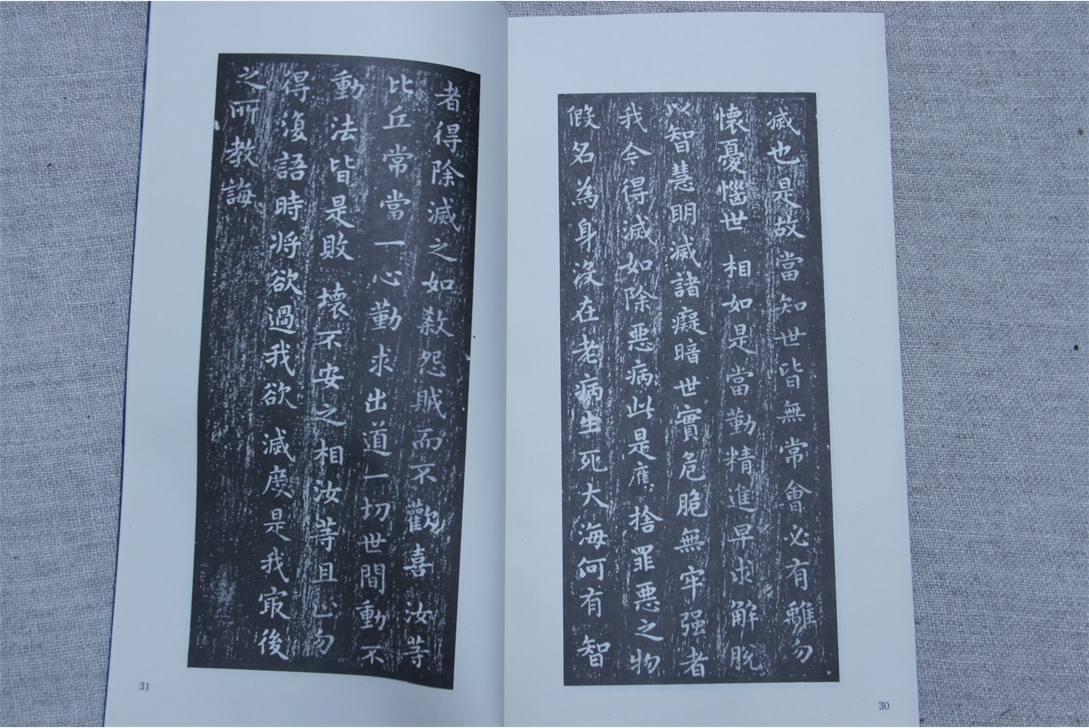 滅也是故當知世皆無常會必有離勿
懷憂惱世相如是當勤精進早求解脫
以智慧明滅諸癡暗世實危脆無牢强者
我今得滅如除悪病此是應捨罪悪之物
假名為身沒在老病生死大海何有智
30
者得除滅之如殺怨賊而不歡喜汝等
比丘常當一心勤求出道一切世間動不
動法皆是敗壞不安之相汝等且止勿
得復語時将欲過我欲滅度是我冣後
之所教誨
31